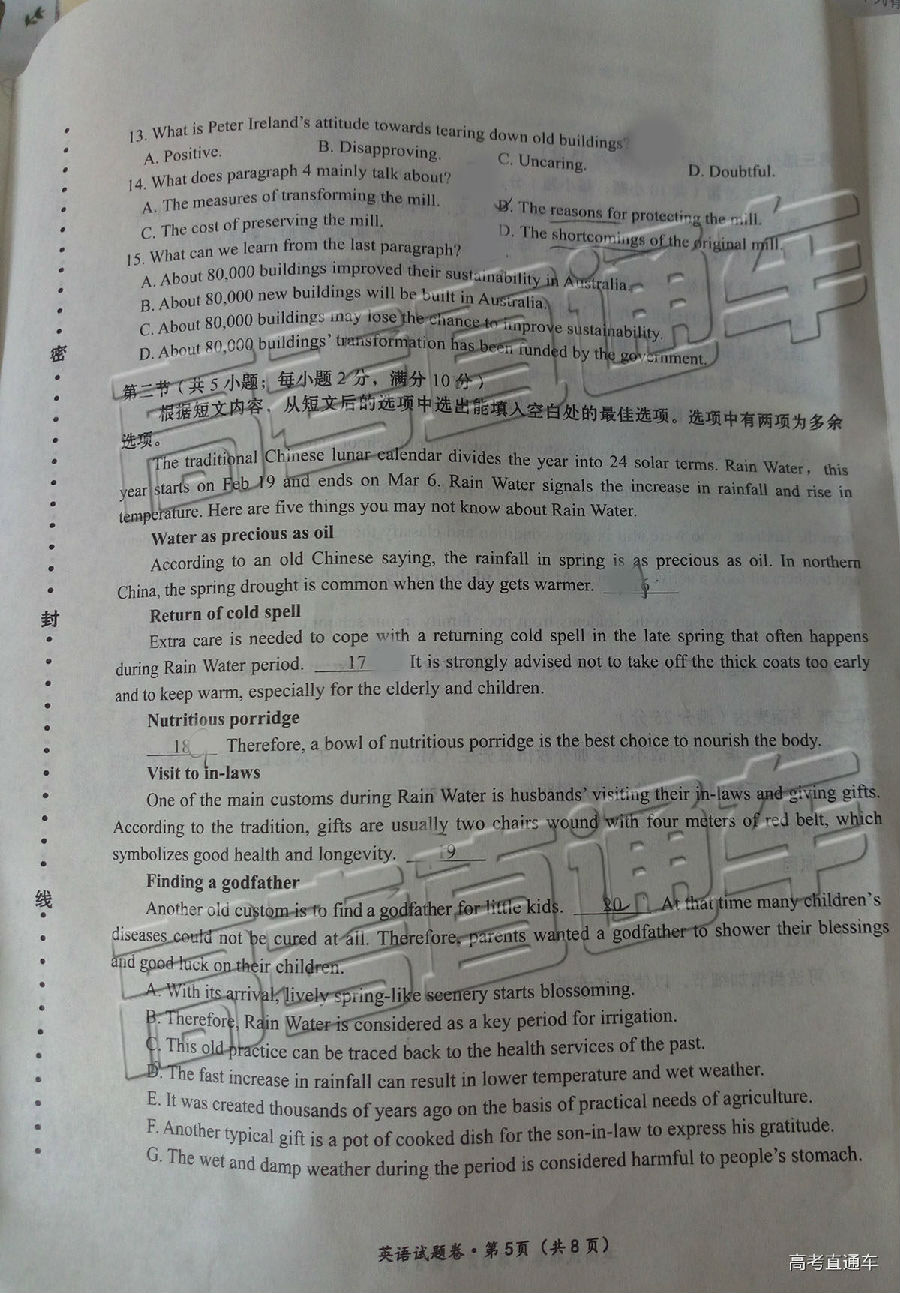 13. What is Peter Ireland's attitude towards tearing down old buildings?
A. Positive. B. Disapproving. C. Uncaring. D. Doubtful.
14. What does paragraph 4 mainly talk about?
A. The measures of transforming the mill. B. The reasons for protecting the mill.
C. The cost of preserving the mill. D. The shortcomings of the original mill.
15. What can we learn from the last paragraph?
A. About 80,000 buildings improved their sustainability in Australia.
B. About 80,000 new buildings will be built in Australia.
C. About 80,000 buildings may lose the chance to improve sustainability.
D. About 80,000 buildings' transformation has been funded by the government.
第二节(共5小题;每小题2分,满分10分)
根据短文内容,从短文后的选项中选出能填入空白处的最佳选项。选项中有两项为多余
选项。
The traditional Chinese lunar calendar divides the year into 24 solar terms. Rain Water, this
year starts on Feb 19 and ends on Mar 6. Rain Water signals the increase in rainfall and rise in
temperature. Here are five things you may not know about Rain Water.
Water as precious as oil
According to an old Chinese saying, the rainfall in spring is as precious as oil. In northern
China, the spring drought is common when the day gets warmer.
Return of cold spell
Extra care is needed to cope with a returning cold spell in the late spring that often happens
during Rain Water period. 17 It is strongly advised not to take off the thick coats too early
and to keep warm, especially for the elderly and children.
Nutritious porridge
18 Therefore, a bowl of nutritious porridge is the best choice to nourish the body.
Visit to in-laws
One of the main customs during Rain Water is husbands' visiting their in-laws and giving gifts.
According to the tradition, gifts are usually two chairs wound with four meters of red belt, which
symbolizes good health and longevity. 19
Finding a godfather
Another old custom is to find a godfather for little kids. 20 At that time many children's
diseases could not be cured at all. Therefore, parents wanted a godfather to shower their blessings
and good luck on their children.
A. With its arrival, lively spring-like scenery starts blossoming.
B. Therefore, Rain Water is considered as a key period for irrigation.
C. This old practice can be traced back to the health services of the past.
D. The fast increase in rainfall can result in lower temperature and wet weather.
E. It was created thousands of years ago on the basis of practical needs of agriculture.
F. Another typical gift is a pot of cooked dish for the son-in-law to express his gratitude.
G. The wet and damp weather during the period is considered harmful to people's stomach.
英语试题卷·第5页(共8页)
密
封
线
高考直通车
高考直通车
高考直通车